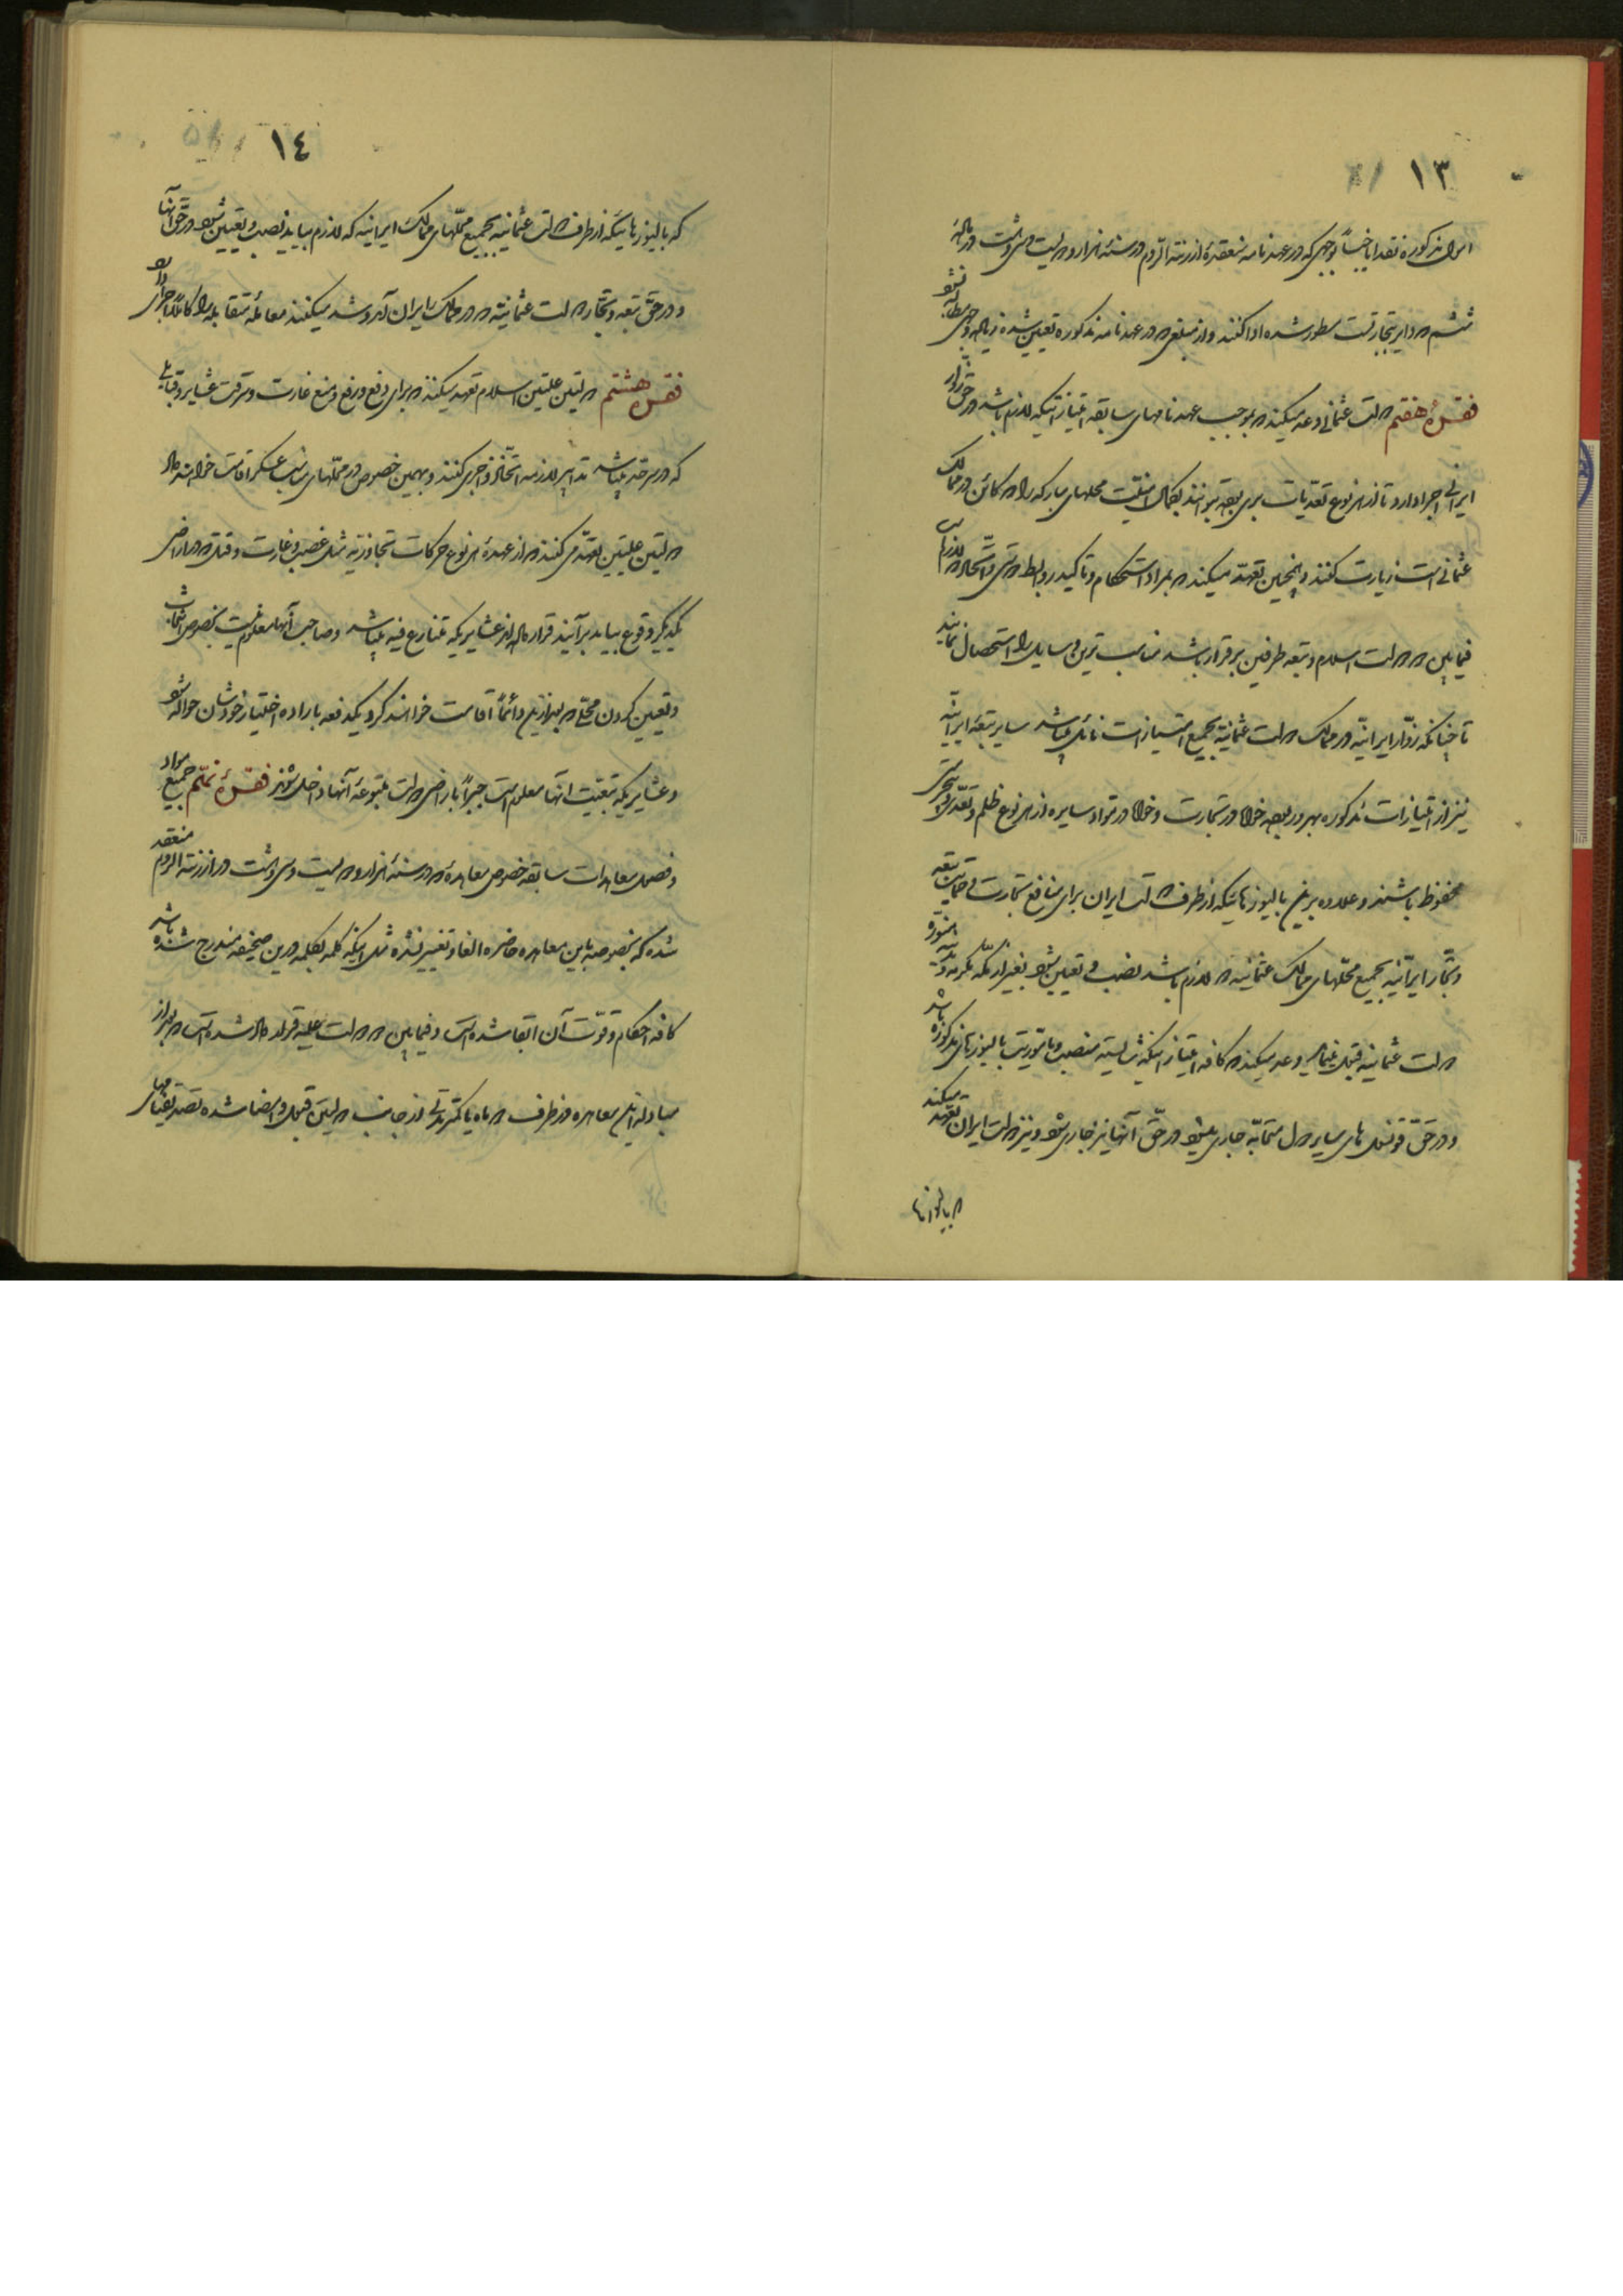 ١٣
اموال مذکوره نقداً یا جنساً بوجهی که در عهدنامه منعقدهٔ ارزنة الروم در سنهٔ هزار و دویست و سی و هشت در مادهٔ
ششم که دایر بتجارتست مسطور شده ادا کنند و از مبلغی که در عهدنامه مذکوره تعیین شده زیاده وجهی مطالبه نشود
فقرهٔ هفتم دولت عثمانی وعده میکند که بموجب عهدنامهای سابقه امتیازاتیکه لازم باشد در حق زوار
ایرانی اجرا دارد تا از هر نوع تعدیات بری بوده بتوانند بکمال امنیت محلهای مبارکه را که کائن در ممالک
عثمانی است زیارت کنند و همچنین تعهد میکند که بمراد استحکام و تاکید روابط دوستی و اتحاد که لازم است
فیمابین دو دولت اسلام و تبعه طرفین برقرار باشد مناسب ترین وسایل را استحصال نمایند
تا چنانکه زوار ایرانیه در ممالک دولت عثمانیه بجمیع امتیازات نائل میباشند سایر تبعهٔ ایرانیه
نیز از امتیازات مذکوره بهره‌ور بوده خواه در تجارت و خواه در مواد سایره از هر نوع ظلم و تعدی و بیحرمتی
محفوظ باشند و علاوه برین بالیوزهائیکه از طرف دولت ایران برای منافع تجارت و حمایت تبعه
و تجار ایرانیه بجمیع محلهای ممالک عثمانیه که لازم باشد نصب و تعیین بشود بغیر از مکه مکرمه و مدینه منوره
دولت عثمانیه قبول مینماید و وعده میکند که کافه امتیازاتیکه شایسته منصب و ماموریت بالیوزهای مذکوره باشد
و در حق قونسل های سایر دول متحابه جاری میشود در حق آنها نیز جاری شود و نیز دولت ایران تعهد میکند
که بالیوزها
١٤
که بالیوزهائیکه از طرف دولت عثمانیه بجمیع محلهای ممالک ایرانیه که لازم بیاید نصب و تعیین بشود در حق آنها
و در حق تبعه و تجار دولت عثمانیه که در ممالک ایران آمد و شد میکنند معامله متقابله را کاملاً اجرا دارد
فقره هشتم دولتین علیتین اسلام تعهد میکنند که برای دفع و رفع و منع غارت و سرقت عشایر و قبایلی
که در سرحد میباشند تدابیر لازمه اتخاذ و اجرا کنند و بهمین خصوص در محلهای مناسب عسکر اقامت خواهند داد
دولتین علیتین تعهد می کنند که از عهدهٔ هر نوع حرکات تجاوزیه مثل غصب و غارت و قتل که در اراضی
یکدیگر وقوع بیابد برآیند قرار داده‌اند عشایریکه متنازع فیه میباشند و صاحب آنها معلوم نیست بخصوص انتخاب
و تعیین کردن محلی که بعد از این دائماً اقامت خواهند کرد یکدفعه باراده اختیار خودشان حواله شود
و عشایریکه تبعیت آنها معلوم است جبراً باراضی دولت متبوعهٔ آنها داخل شوند فقرهٔ نهم جمیع مواد
و فصول معاهدات سابقه خصوص معاهدهٔ که در سنهٔ هزار و دویست و سی و هشت در ارزنة الروم منعقد
شده که بخصوصه باین معاهده حاضره الغا و تغییر نشده مثل اینکه کلمه بکلمه درین صحیفه مندرج شده باشد
کافه احکام و قوت آن ابقا شده است و فیمابین دو دولت علیه قرار داده شده است که بعد از
مبادله این معاهده در ظرف دو ماه یا کمتر مدتی از جانب دولتین قبول و امضا شده تصدیقنامهای